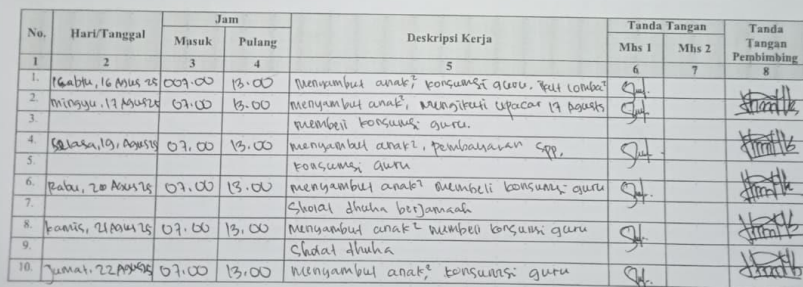 No. Hari/Tanggal Jam Deskripsi Kerja Tanda Tangan Tanda Tangan Pembimbing
Masuk Pulang Mhs 1 Mhs 2
1 2 3 4 5 6 7 8
1. Sabtu, 16 Agus 25 007.00 13.00 menyambut anak², konsumsi guru, ikut lomba²
2. minggu, 17 Agus 25 07.00 13.00 menyambut anak², mengikuti upacar 17 Agusts
3. membeli konsumsi guru.
4. Selasa, 19, Agus 25 07.00 13.00 menyambut anak², pembayaran SPP,
5. konsumsi guru
6. Rabu, 20 Agus 25 07.00 13.00 menyambut anak² membeli konsumsi guru
7. Sholat dhuha berjamaah
8. Kamis, 21 Agus 25 07.00 13.00 menyambut anak² membeli konsumsi guru
9. Sholat dhuha
10. Jumat, 22 Agus 25 07.00 13.00 menyambut anak², konsumsi guru